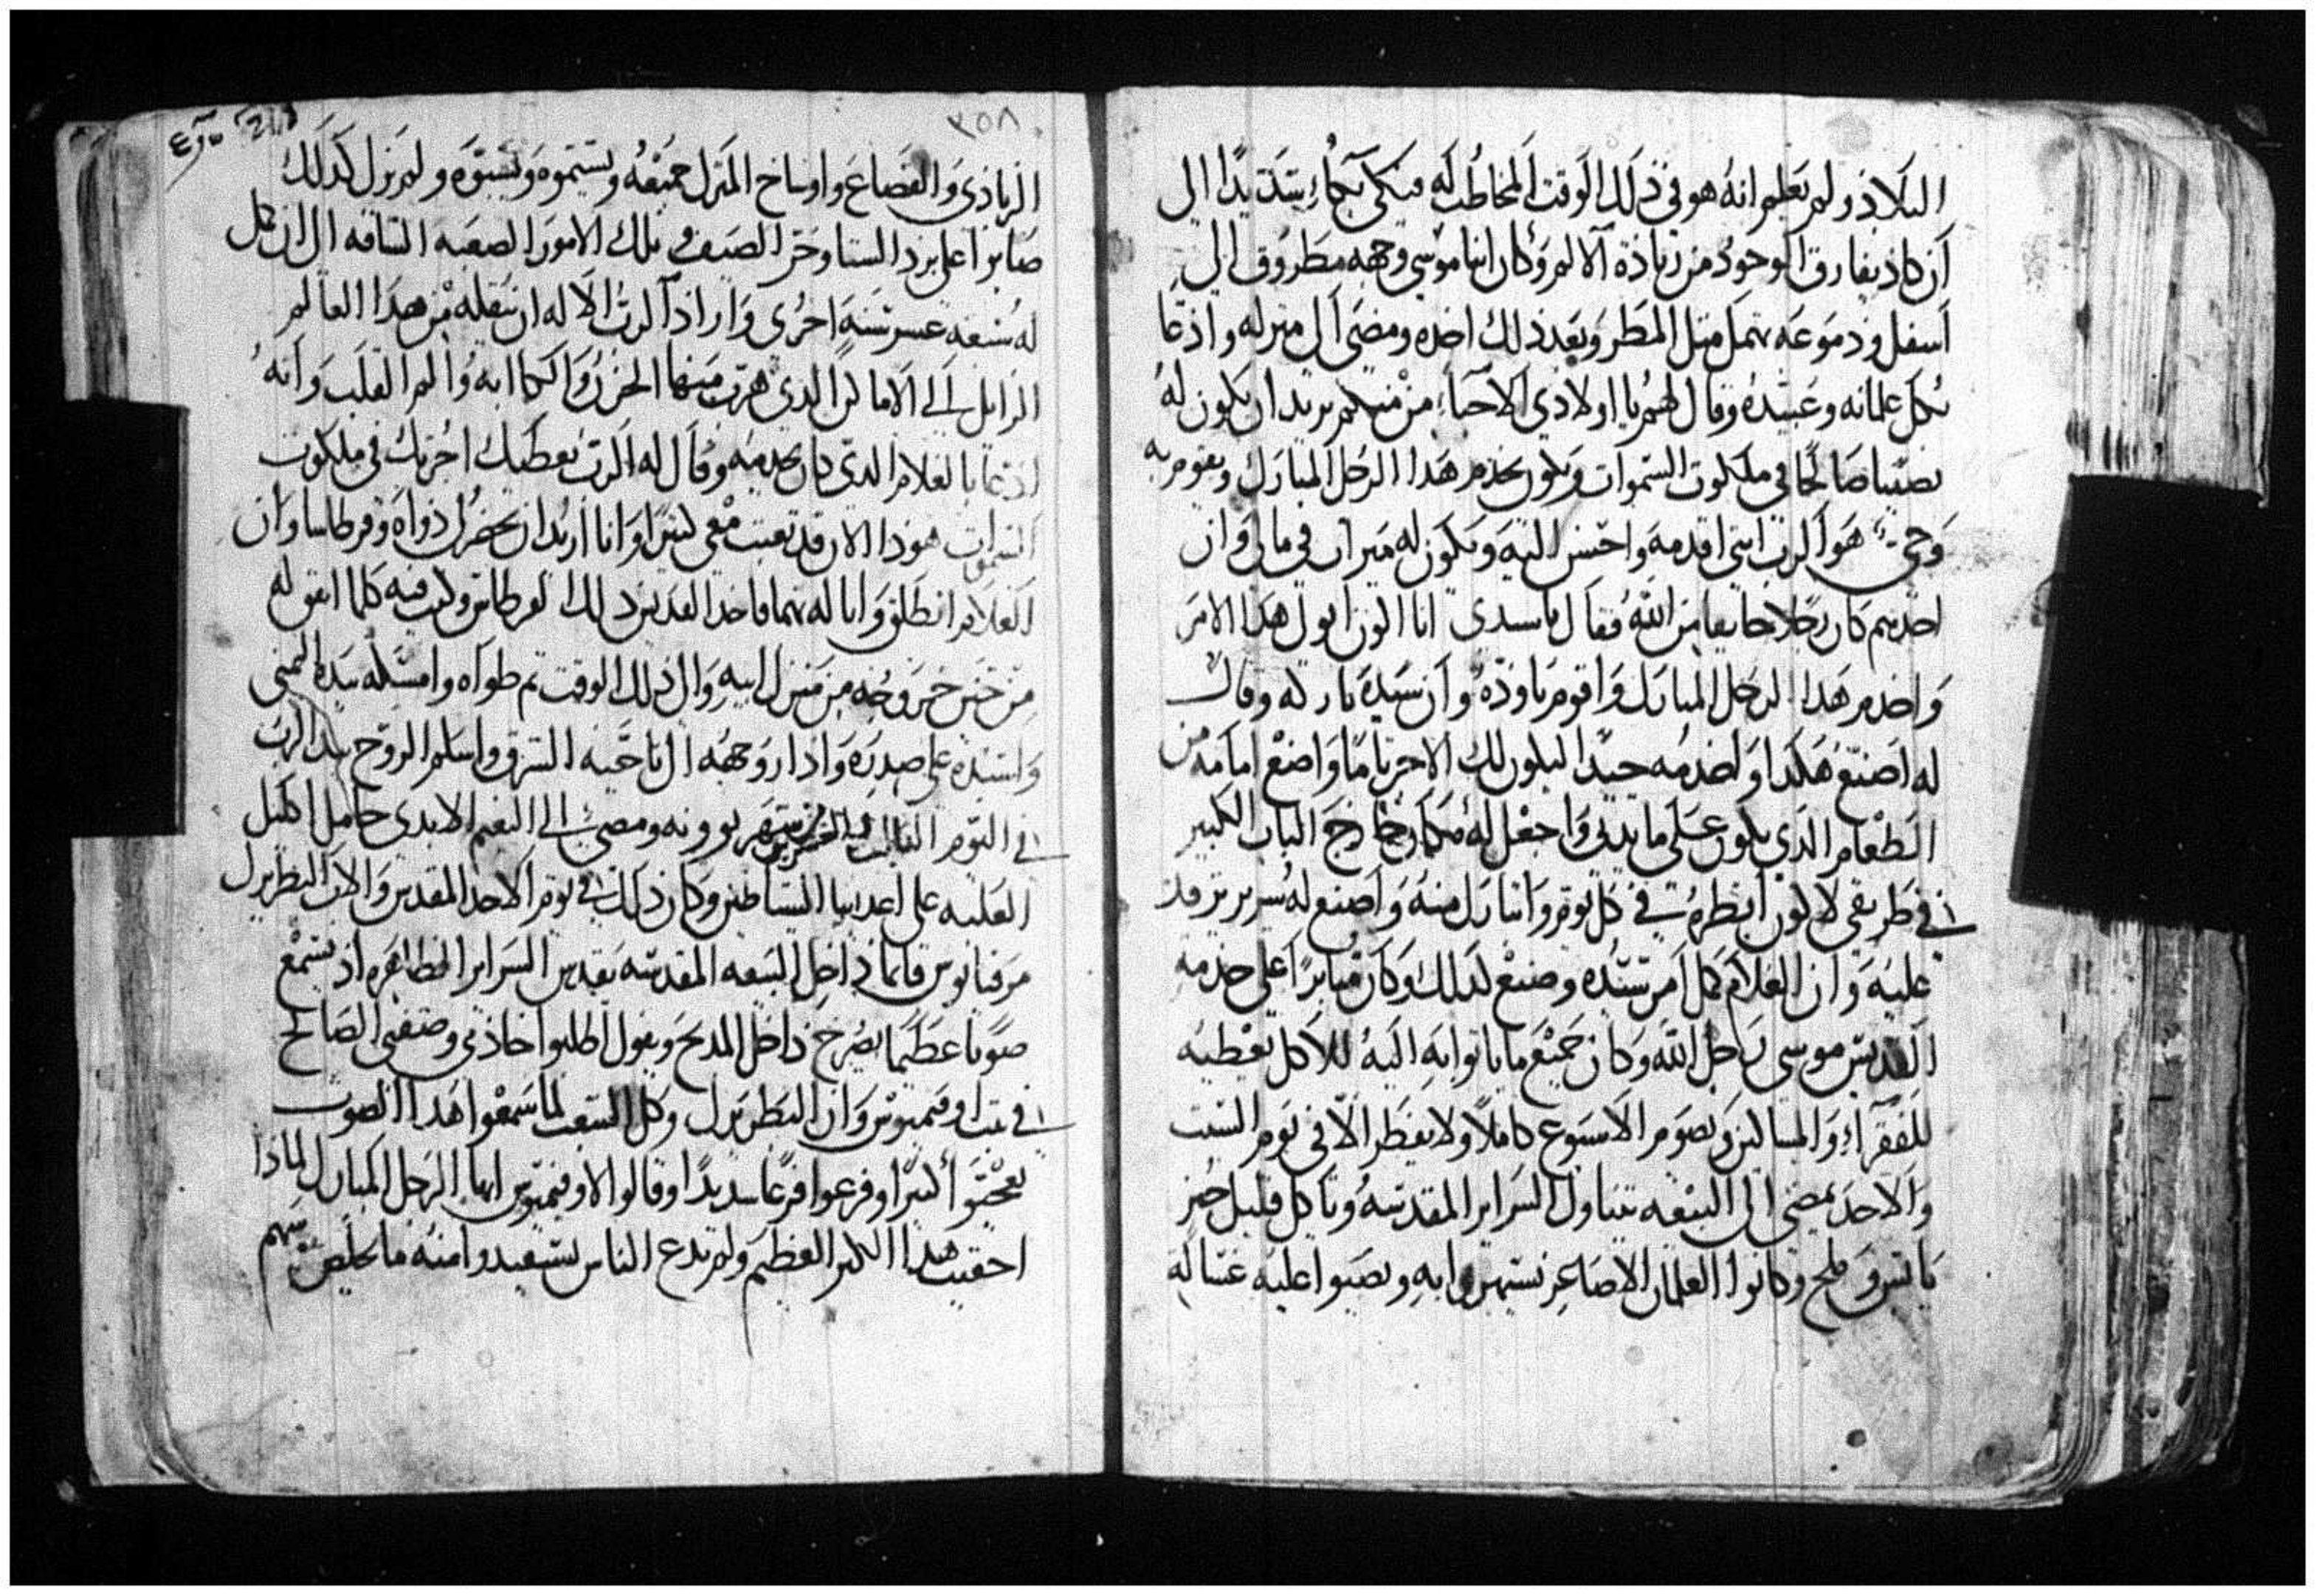 البلاد ولم تعلم انه هو في ذلك الوقت المخاطب له فبكى بكآءً شديدًا الى
أن كاد يفارق الوجود من زيادة الالم وكان انبا موسى وجهه مطروق الى
اسفل ودموعه تهمل متل المطر وبعد ذلك اخده ومضى الى منزله وادعا
بكل غلمانه وعبيده وقال لهم يا اولادي الاحبآء من منكم يريد ان يكون له
نصيبا صالحًا في ملكوت السموات ويكون يخدم هدا الرجل المبارك ويقوم به
وحي هو الرب انني اقدمه واحسن اليه ويكون له ميرات في مالي وان
احدهم كان رجلا خايفا من الله فقال يا سيدي انا اكون اتولى هدا الامر
واخدم هدا الرجل المبارك واقوم باوده وان سيده بارك له وقال
له اصنع هكدا واخدمه جيدًا ليكون لك الاجر تامًا واضع امامه من
الطعام الدي يكون على مايدتي واجعل له مكان خارج الباب الكبير
في طريقي لاكون انظره في كل يوم واتبارك منه واصنع له سرير يرقد
عليه وان الغلام كمل امر سيده وصنع كدلك وكان متابرًا على خدمة
القديس موسى رجل الله وكان جميع ما ياتوا به اليه للاكل يعطيه
للفقرآء والمساكين ويصوم الاسبوع كاملًا ولا يفطر الا في يوم السبت
والاحد يمضى الى البيعه يتناول السراير المقدسه وياكل قليل خبز
يابس وملح وكانوا الغلمان الاصاغر يستهزوا به ويصبوا عليه غسالة
٢٥٨
الزبادي والقصاع واوساخ المنزل جميعه ويشتموه ويسبوه ولم يزل كدلك
صابرا على برد الشتا وحر الصيف وتلك الامور الصعبه الشاقه الى ان كمل
له سبعه عشر سنه اخرى واراد الرب الاله ان ينقله من هدا العالم
الزايل الى الاماكن الدي هرب منها الحزن والكاابه والم القلب وانه
ادعا بالغلام الدي كان يخدمه وقال له الرب يعطيك اجرتك في ملكوت
السموات هودا الان قد تعبت معي كتيرا وانا اريد ان تحضر لي دواه وقرطاسا وان
الغلام انطلق واتا له بهما فاخد القديس دلك القرطاس وكتب فيه كلما اتفق له
من حين خروجه من منزل ابيه والى دلك الوقت تم طواه وامسكه بيده اليمنى
واسنده على صدره وادار وجهه الى ناحية الشرق واسلم الروح بيد الرب
في اليوم من شهر بوونه ومضى الى النعيم الابدي حامل اكليل
الغلبه على اعدايه الشياطين وكان دلك في يوم الاحد المقدس والاب البطريرك
مرقيانوس قايما في داخل البيعه المقدسه يقدس السراير الطاهره اد يسمع
صوتا عظيما يصرخ داخل المدبح ويقول اطلبوا خادمي وصفيي الصالح
في بيت اوفيميوس وان البطريرك وكل الشعب لما سمعوا هدا الصوت
تعجبوا كتيرًا وفزعوا فزعا شديدًا وقالوا لاوفيميوس ايها الرجل المبارك لمادا
اخفيت هدا الكنز العظيم ولم تدع الناس يستفيدوا منه ما يخلص نفوسهم